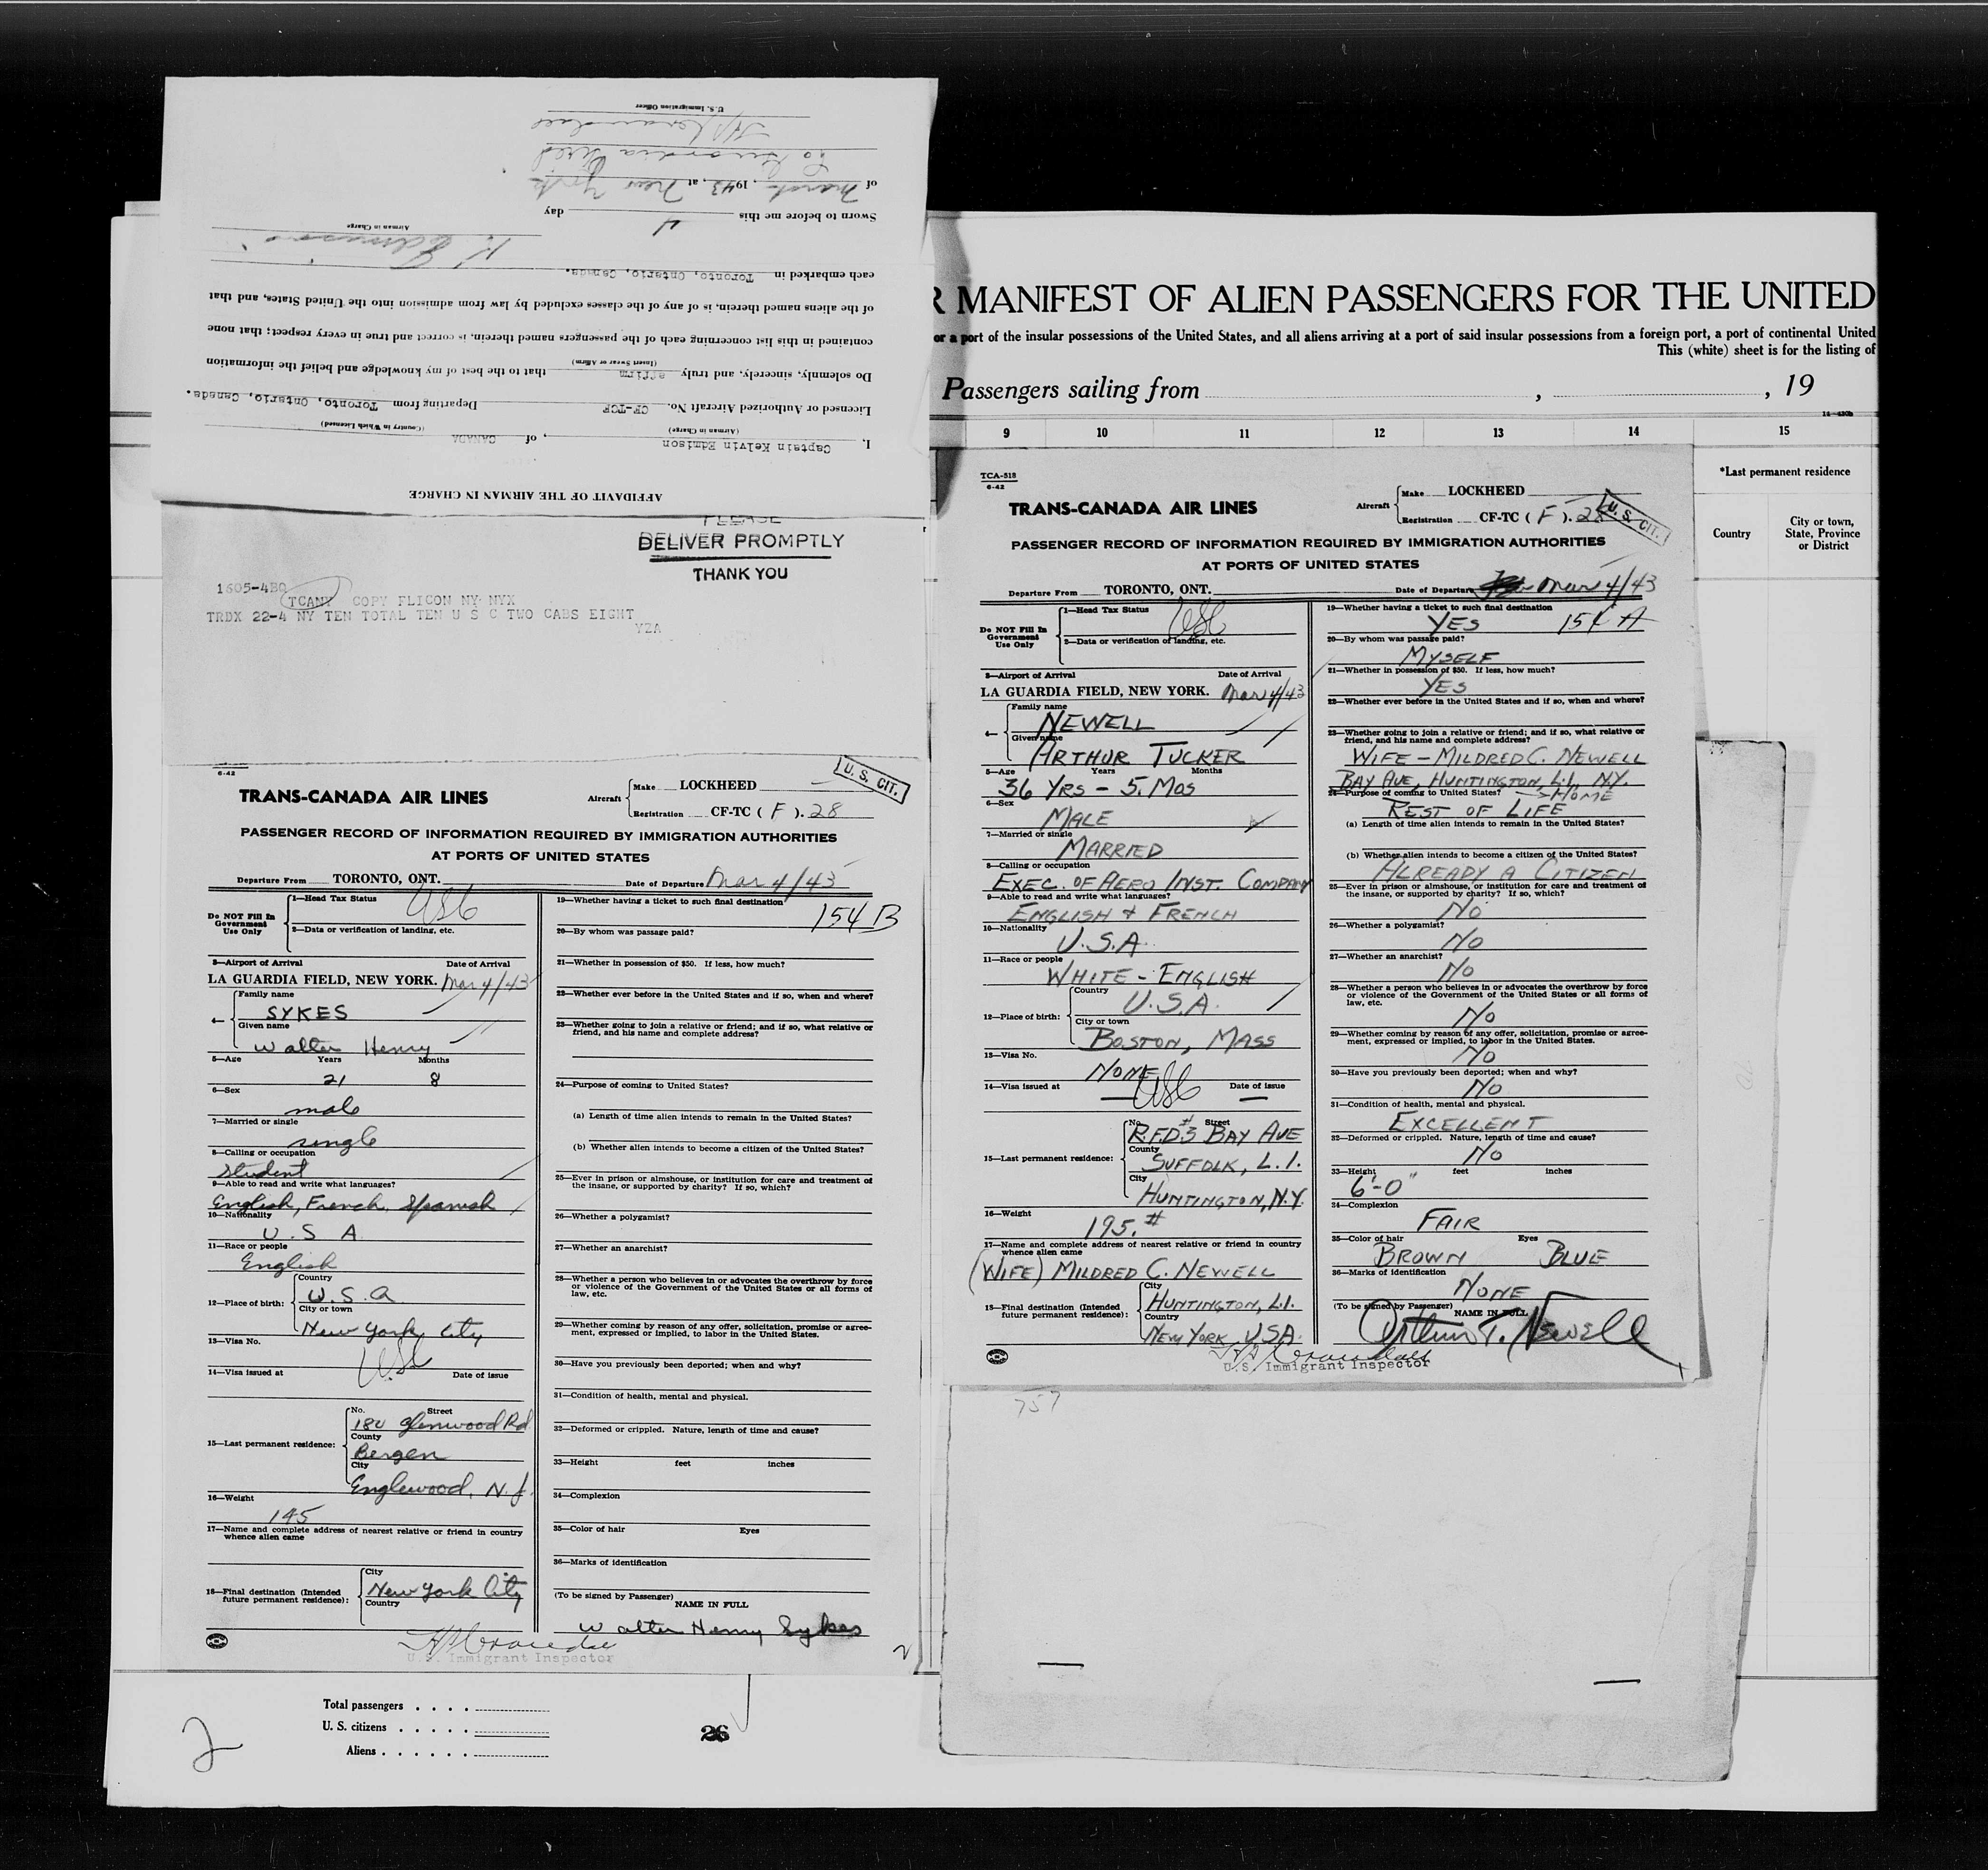 AFFIDAVIT OF THE AIRMAN IN CHARGE
I, Captain Kelvin Edmison, of CANADA
(Airman in Charge) (Country in Which Licensed)
Licensed or Authorized Aircraft No. CF-TCF Departing from Toronto, Ontario, Canada.
Do solemnly, sincerely, and truly affirm that to the best of my knowledge and belief the information
(Insert Swear or Affirm)
contained in this list concerning each of the passengers named therein, is correct and true in every respect; that none
of the aliens named therein, is of any of the classes excluded by law from admission into the United States, and that
each embarked in Toronto, Ontario, Canada.
K. Edmison
Airman in Charge
Sworn to before me this 4 day
of March, 1943, at New York
La Guardia Field
U.S. Immigration Officer
PLEASE
DELIVER PROMPTLY
THANK YOU
1605-4BQ
TCANY COPY FLICON NY NYX
TRDX 22-4 NY TEN TOTAL TEN U S C TWO CABS EIGHT
YZA
6-42
U. S. CIT.
TRANS-CANADA AIR LINES
Aircraft Make LOCKHEED
Registration CF-TC ( F ). 28
PASSENGER RECORD OF INFORMATION REQUIRED BY IMMIGRATION AUTHORITIES
AT PORTS OF UNITED STATES
Departure From TORONTO, ONT. Date of Departure Mar 4/43
Do NOT Fill In Government Use Only
1—Head Tax Status USC
2—Data or verification of landing, etc.
3—Airport of Arrival Date of Arrival
LA GUARDIA FIELD, NEW YORK. Mar 4/43
4— Family name
SYKES
Given name
Walter Henry
5—Age Years Months
21 8
6—Sex
male
7—Married or single
single
8—Calling or occupation
Student
9—Able to read and write what languages?
English, French, Spanish
10—Nationality
U. S A.
11—Race or people
English
12—Place of birth: Country
U. S. A
City or town
New York City
13—Visa No.
USC
14—Visa issued at Date of issue
15—Last permanent residence: No. Street
180 Glenwood Rd.
County
Bergen
City
Englewood, N. J.
16—Weight
145
17—Name and complete address of nearest relative or friend in country
whence alien came
18—Final destination (Intended
future permanent residence): City
New York City
Country
U.S. Immigrant Inspector
19—Whether having a ticket to such final destination
154 B
20—By whom was passage paid?
21—Whether in possession of $50. If less, how much?
22—Whether ever before in the United States and if so, when and where?
23—Whether going to join a relative or friend; and if so, what relative or
friend, and his name and complete address?
24—Purpose of coming to United States?
(a) Length of time alien intends to remain in the United States?
(b) Whether alien intends to become a citizen of the United States?
25—Ever in prison or almshouse, or institution for care and treatment of
the insane, or supported by charity? If so, which?
26—Whether a polygamist?
27—Whether an anarchist?
28—Whether a person who believes in or advocates the overthrow by force
or violence of the Government of the United States or all forms of
law, etc.
29—Whether coming by reason of any offer, solicitation, promise or agree-
ment, expressed or implied, to labor in the United States.
30—Have you previously been deported; when and why?
31—Condition of health, mental and physical.
32—Deformed or crippled. Nature, length of time and cause?
33—Height feet inches
34—Complexion
35—Color of hair Eyes
36—Marks of identification
(To be signed by Passenger) NAME IN FULL
Walter Henry Sykes
2
Total passengers . . . .
U. S. citizens . . . . .
Aliens . . . . . .
26
2
R MANIFEST OF ALIEN PASSENGERS FOR THE UNITED
or a port of the insular possessions of the United States, and all aliens arriving at a port of said insular possessions from a foreign port, a port of continental United
This (white) sheet is for the listing of
Passengers sailing from , , 19
9 10 11 12 13 14 15
*Last permanent residence
Country City or town, State, Province or District
TCA-518
6-42
TRANS-CANADA AIR LINES
Aircraft Make LOCKHEED
Registration CF-TC ( F ). 28
U. S. CIT.
PASSENGER RECORD OF INFORMATION REQUIRED BY IMMIGRATION AUTHORITIES
AT PORTS OF UNITED STATES
Departure From TORONTO, ONT. Date of Departure Mar 4/43
Do NOT Fill In Government Use Only
1—Head Tax Status USC
2—Data or verification of landing, etc.
3—Airport of Arrival Date of Arrival
LA GUARDIA FIELD, NEW YORK. Mar 4/43
4— Family name
NEWELL
Given name
ARTHUR TUCKER
5—Age Years Months
36 YRS - 5. MOS
6—Sex
MALE
7—Married or single
MARRIED
8—Calling or occupation
EXEC. OF AERO INST. COMPANY
9—Able to read and write what languages?
ENGLISH & FRENCH
10—Nationality
U. S. A.
11—Race or people
WHITE - ENGLISH
12—Place of birth: Country
U. S. A.
City or town
BOSTON, MASS
13—Visa No.
NONE
14—Visa issued at USC Date of issue
15—Last permanent residence: No. Street
R.F.D. #3 BAY AVE
County
SUFFOLK, L. I.
City
HUNTINGTON, N.Y.
16—Weight
195.#
17—Name and complete address of nearest relative or friend in country
whence alien came
(WIFE) MILDRED C. NEWELL
18—Final destination (Intended
future permanent residence): City
HUNTINGTON, L.I.
Country
NEW YORK, USA.
U.S. Immigrant Inspector
19—Whether having a ticket to such final destination
YES 154 A
20—By whom was passage paid?
MYSELF
21—Whether in possession of $50. If less, how much?
YES
22—Whether ever before in the United States and if so, when and where?
23—Whether going to join a relative or friend; and if so, what relative or
friend, and his name and complete address?
WIFE - MILDRED C. NEWELL
BAY AVE, HUNTINGTON, L.I., N.Y.
24—Purpose of coming to United States? HOME
REST OF LIFE
(a) Length of time alien intends to remain in the United States?
(b) Whether alien intends to become a citizen of the United States?
ALREADY A CITIZEN
25—Ever in prison or almshouse, or institution for care and treatment of
the insane, or supported by charity? If so, which?
NO
26—Whether a polygamist?
NO
27—Whether an anarchist?
NO
28—Whether a person who believes in or advocates the overthrow by force
or violence of the Government of the United States or all forms of
law, etc.
NO
29—Whether coming by reason of any offer, solicitation, promise or agree-
ment, expressed or implied, to labor in the United States.
NO
30—Have you previously been deported; when and why?
NO
31—Condition of health, mental and physical.
EXCELLENT
32—Deformed or crippled. Nature, length of time and cause?
NO
33—Height feet inches
6'-0"
34—Complexion
FAIR
35—Color of hair Eyes
BROWN BLUE
36—Marks of identification
NONE
(To be signed by Passenger) NAME IN FULL
Arthur T. Newell
757